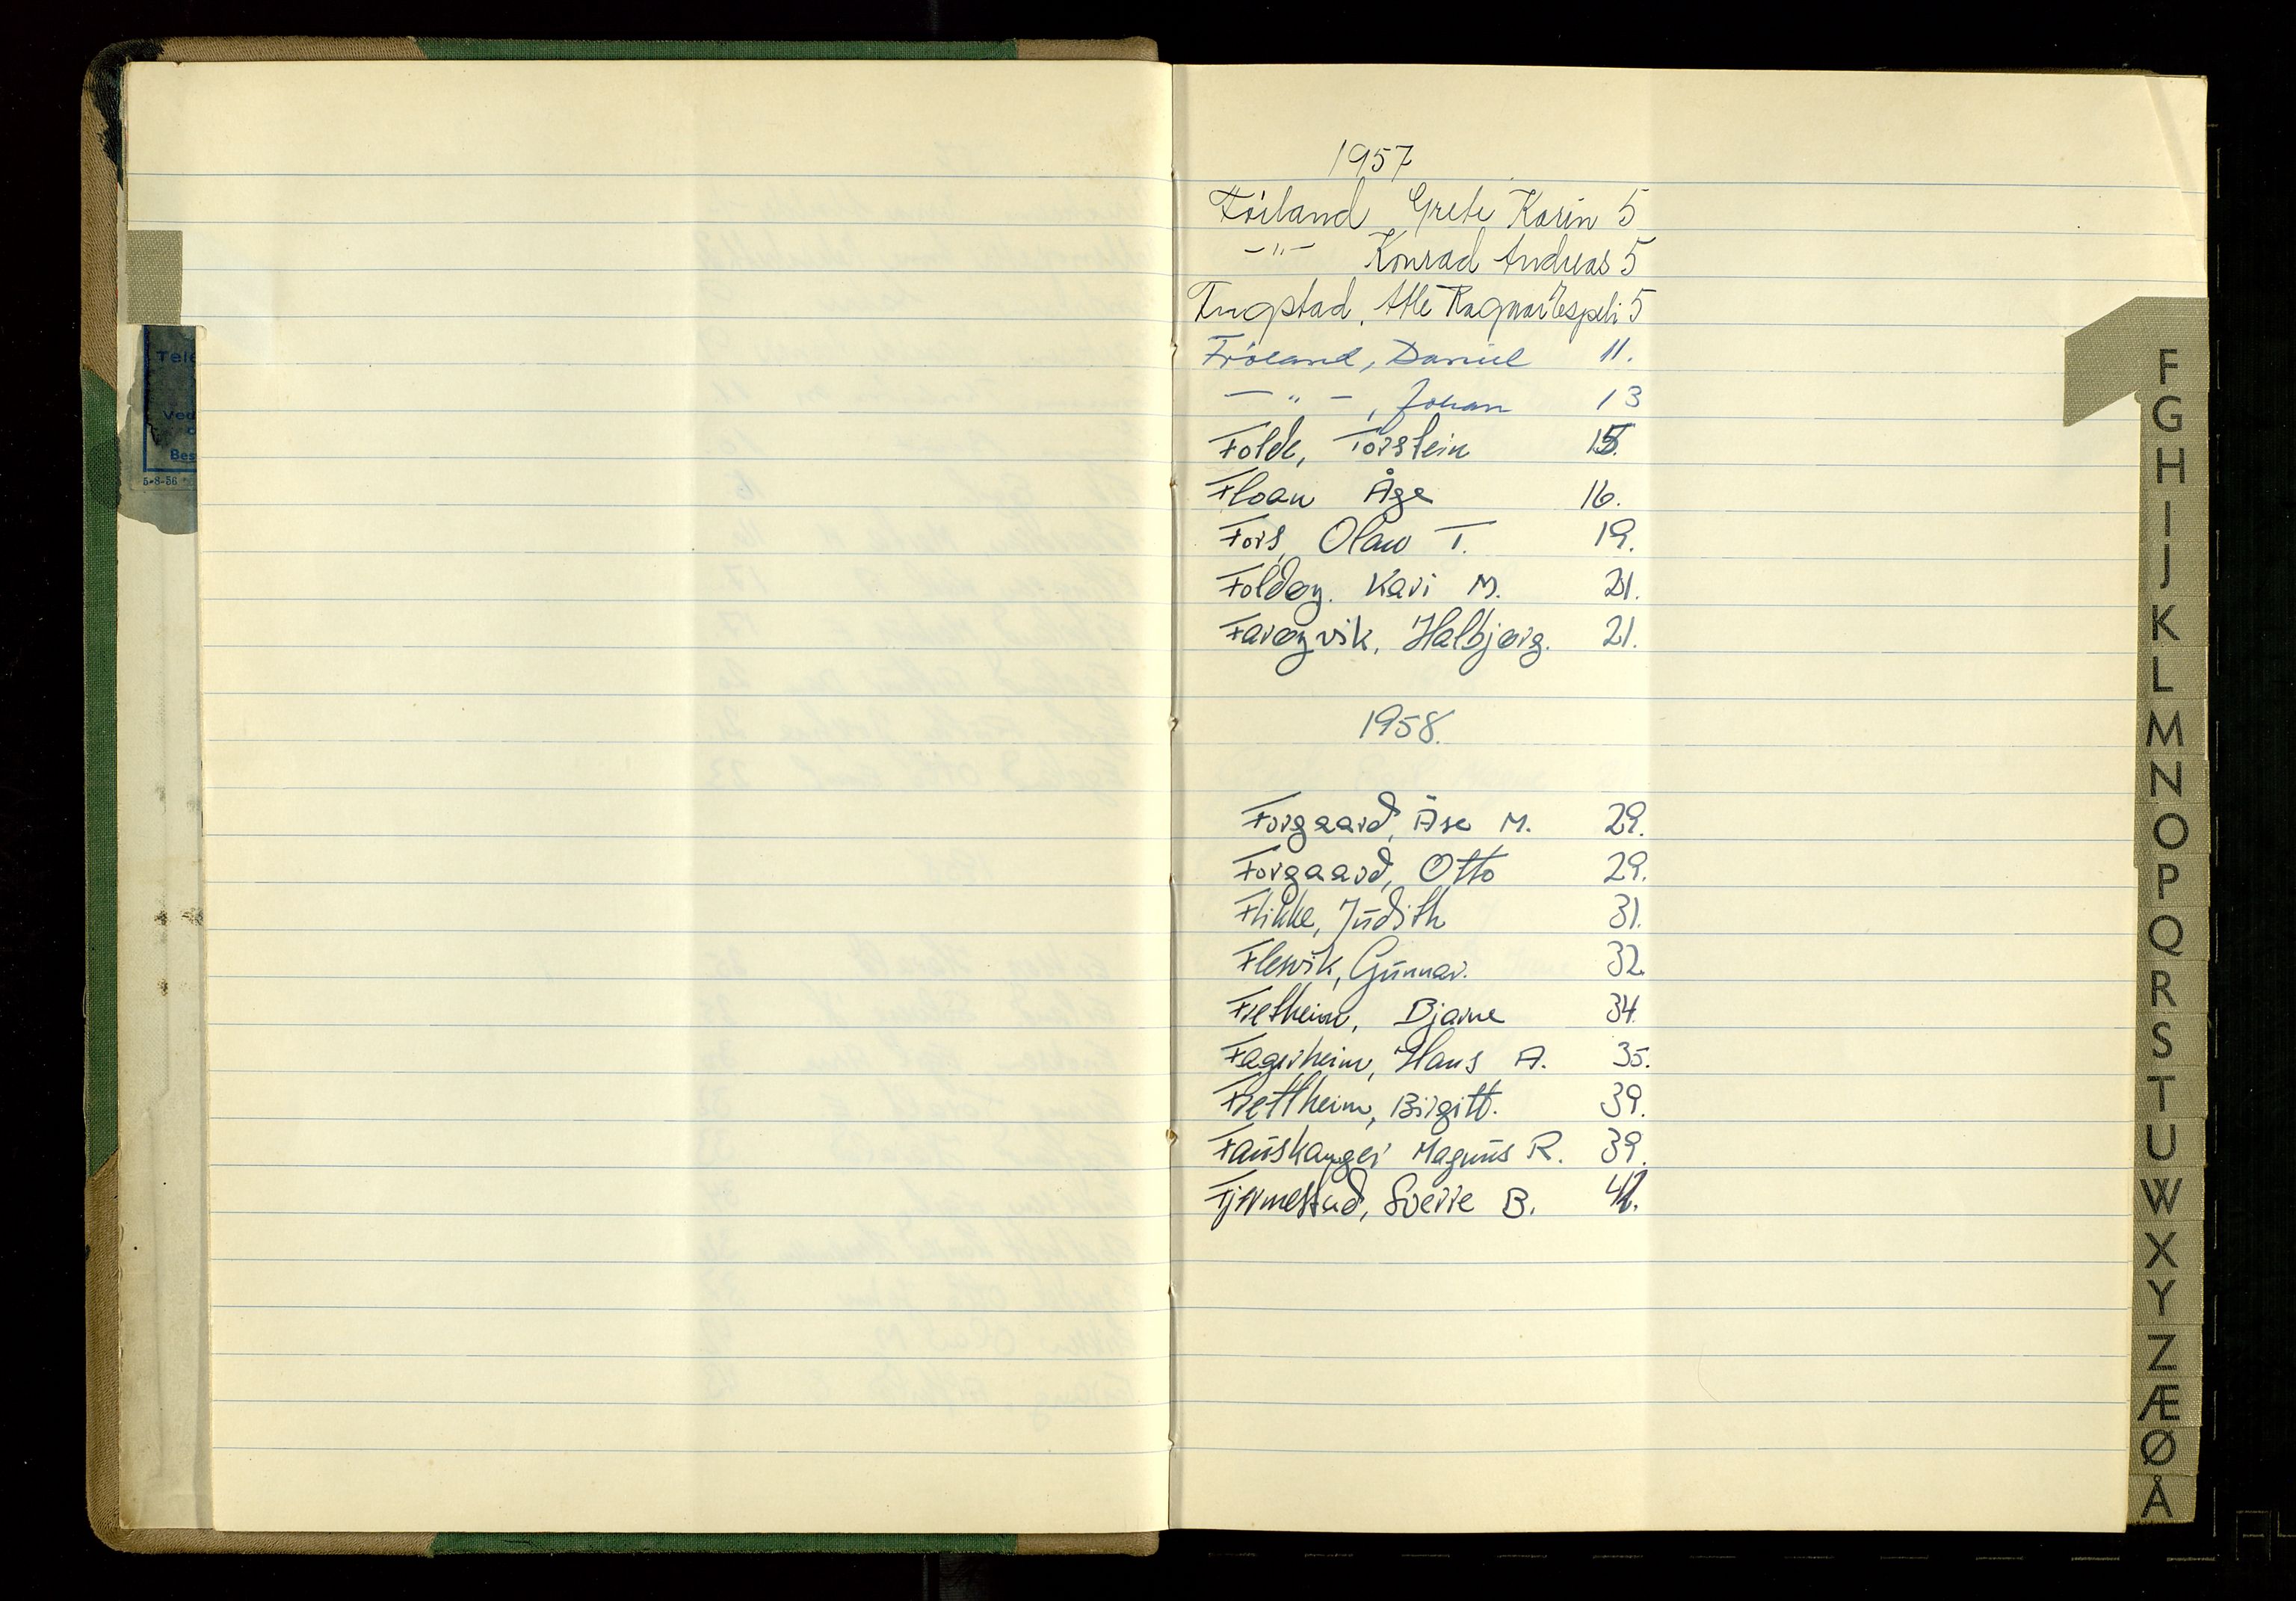 Tele
Ved
Bes
5-8-56
1957
Föiland Grete Karin 5
—"— Konrad Andreas 5
Fugstad, Atle Ragnar Espeli 5
Fröland, Daniel 11.
— " —, Johan 13
Folde, Torstein 15.
Floan Åge 16.
Fors, Olav T. 19.
Foldøy. Kari M. 21.
Farøyvik, Halbjørg. 21.
1958.
Forgaard, Åse M. 29.
Forgaard, Otto 29.
Flikke, Judith 31.
Flesvik, Gunnar. 32.
Fretheim, Bjarne 34.
Fagerheim, Hans A. 35.
Frettheim, Birgitt. 39.
Fauskanger Magnus R. 39.
Fjermestad, Sverre B. 42.
F
G
H
I
J
K
L
M
N
O
P
Q
R
S
T
U
W
X
Y
Z
Æ
Ø
Å